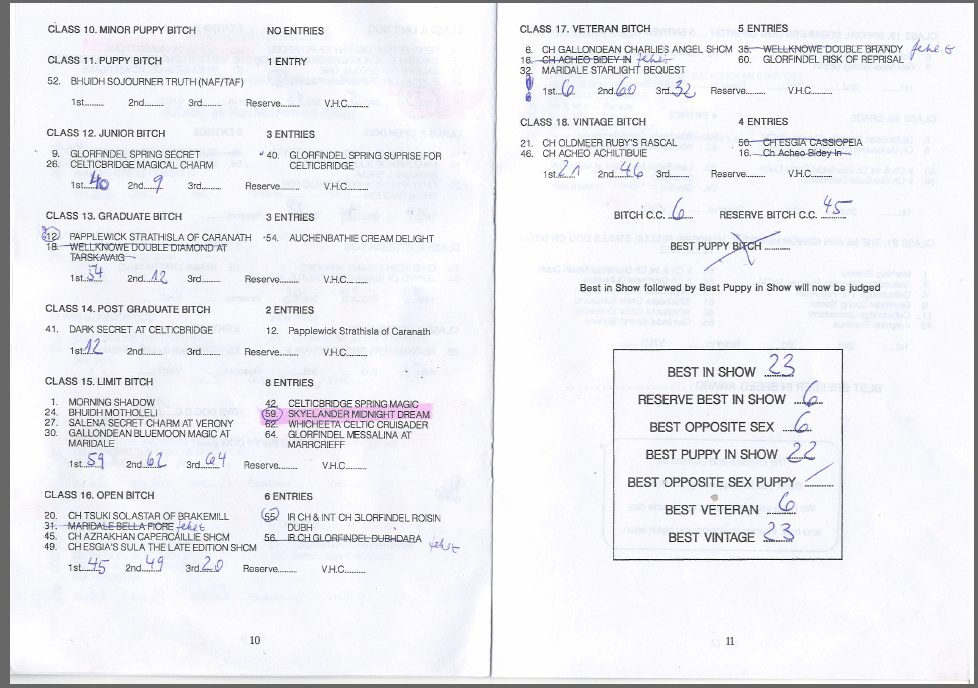 CLASS 10. MINOR PUPPY BITCH NO ENTRIES
CLASS 11. PUPPY BITCH 1 ENTRY
52. BHUIDH SOJOURNER TRUTH (NAF/TAF)
1st......... 2nd......... 3rd......... Reserve......... V.H.C.........
CLASS 12. JUNIOR BITCH 3 ENTRIES
9. GLORFINDEL SPRING SECRET
26. CELTICBRIDGE MAGICAL CHARM
40. GLORFINDEL SPRING SUPRISE FOR
CELTICBRIDGE
1st...40 2nd...9 3rd......... Reserve......... V.H.C.........
CLASS 13. GRADUATE BITCH 3 ENTRIES
12. PAPPLEWICK STRATHISLA OF CARANATH
18. WELLKNOWE DOUBLE DIAMOND AT
TARSKAVAIG
54. AUCHENBATHIE CREAM DELIGHT
1st...54 2nd...12 3rd......... Reserve......... V.H.C.........
CLASS 14. POST GRADUATE BITCH 2 ENTRIES
41. DARK SECRET AT CELTICBRIDGE
12. Papplewick Strathisla of Caranath
1st...12 2nd......... 3rd......... Reserve......... V.H.C.........
CLASS 15. LIMIT BITCH 8 ENTRIES
1. MORNING SHADOW
24. BHUIDH MOTHOLELI
27. SALENA SECRET CHARM AT VERONY
30. GALLONDEAN BLUEMOON MAGIC AT
MARIDALE
42. CELTICBRIDGE SPRING MAGIC
59. SKYELANDER MIDNIGHT DREAM
62. WHICHEETA CELTIC CRUISADER
64. GLORFINDEL MESSALINA AT
MARRCRIEFF
1st...59 2nd...62 3rd...64 Reserve......... V.H.C.........
CLASS 16. OPEN BITCH 6 ENTRIES
20. CH TSUKI SOLASTAR OF BRAKEMILL
31. MARIDALE BELLA FIORE fehlt
45. CH AZRAKHAN CAPERCAILLIE SHCM
49. CH ESGIA'S SULA THE LATE EDITION SHCM
55. IR CH & INT CH GLORFINDEL ROISIN
DUBH
56. IR CH GLORFINDEL DUBHDARA fehlt
1st...45 2nd...49 3rd...20 Reserve......... V.H.C.........
10
CLASS 17. VETERAN BITCH 5 ENTRIES
6. CH GALLONDEAN CHARLIES ANGEL SHCM
16. CH ACHEO BIDEY IN fehlt
32. MARIDALE STARLIGHT BEQUEST
35. WELLKNOWE DOUBLE BRANDY fehlt
60. GLORFINDEL RISK OF REPRISAL
1st...6 2nd...60 3rd...32 Reserve......... V.H.C.........
CLASS 18. VINTAGE BITCH 4 ENTRIES
21. CH OLDMEER RUBY'S RASCAL
46. CH ACHEO ACHILTIBUIE
50. CH ESGIA CASSIOPEIA
16. Ch Acheo Bidey In
1st...21 2nd...46 3rd......... Reserve......... V.H.C.........
BITCH C.C. 6 RESERVE BITCH C.C. 45
BEST PUPPY BITCH .............
Best in Show followed by Best Puppy in Show will now be judged
BEST IN SHOW 23
RESERVE BEST IN SHOW 6
BEST OPPOSITE SEX 6
BEST PUPPY IN SHOW 22
BEST OPPOSITE SEX PUPPY
BEST VETERAN 6
BEST VINTAGE 23
11